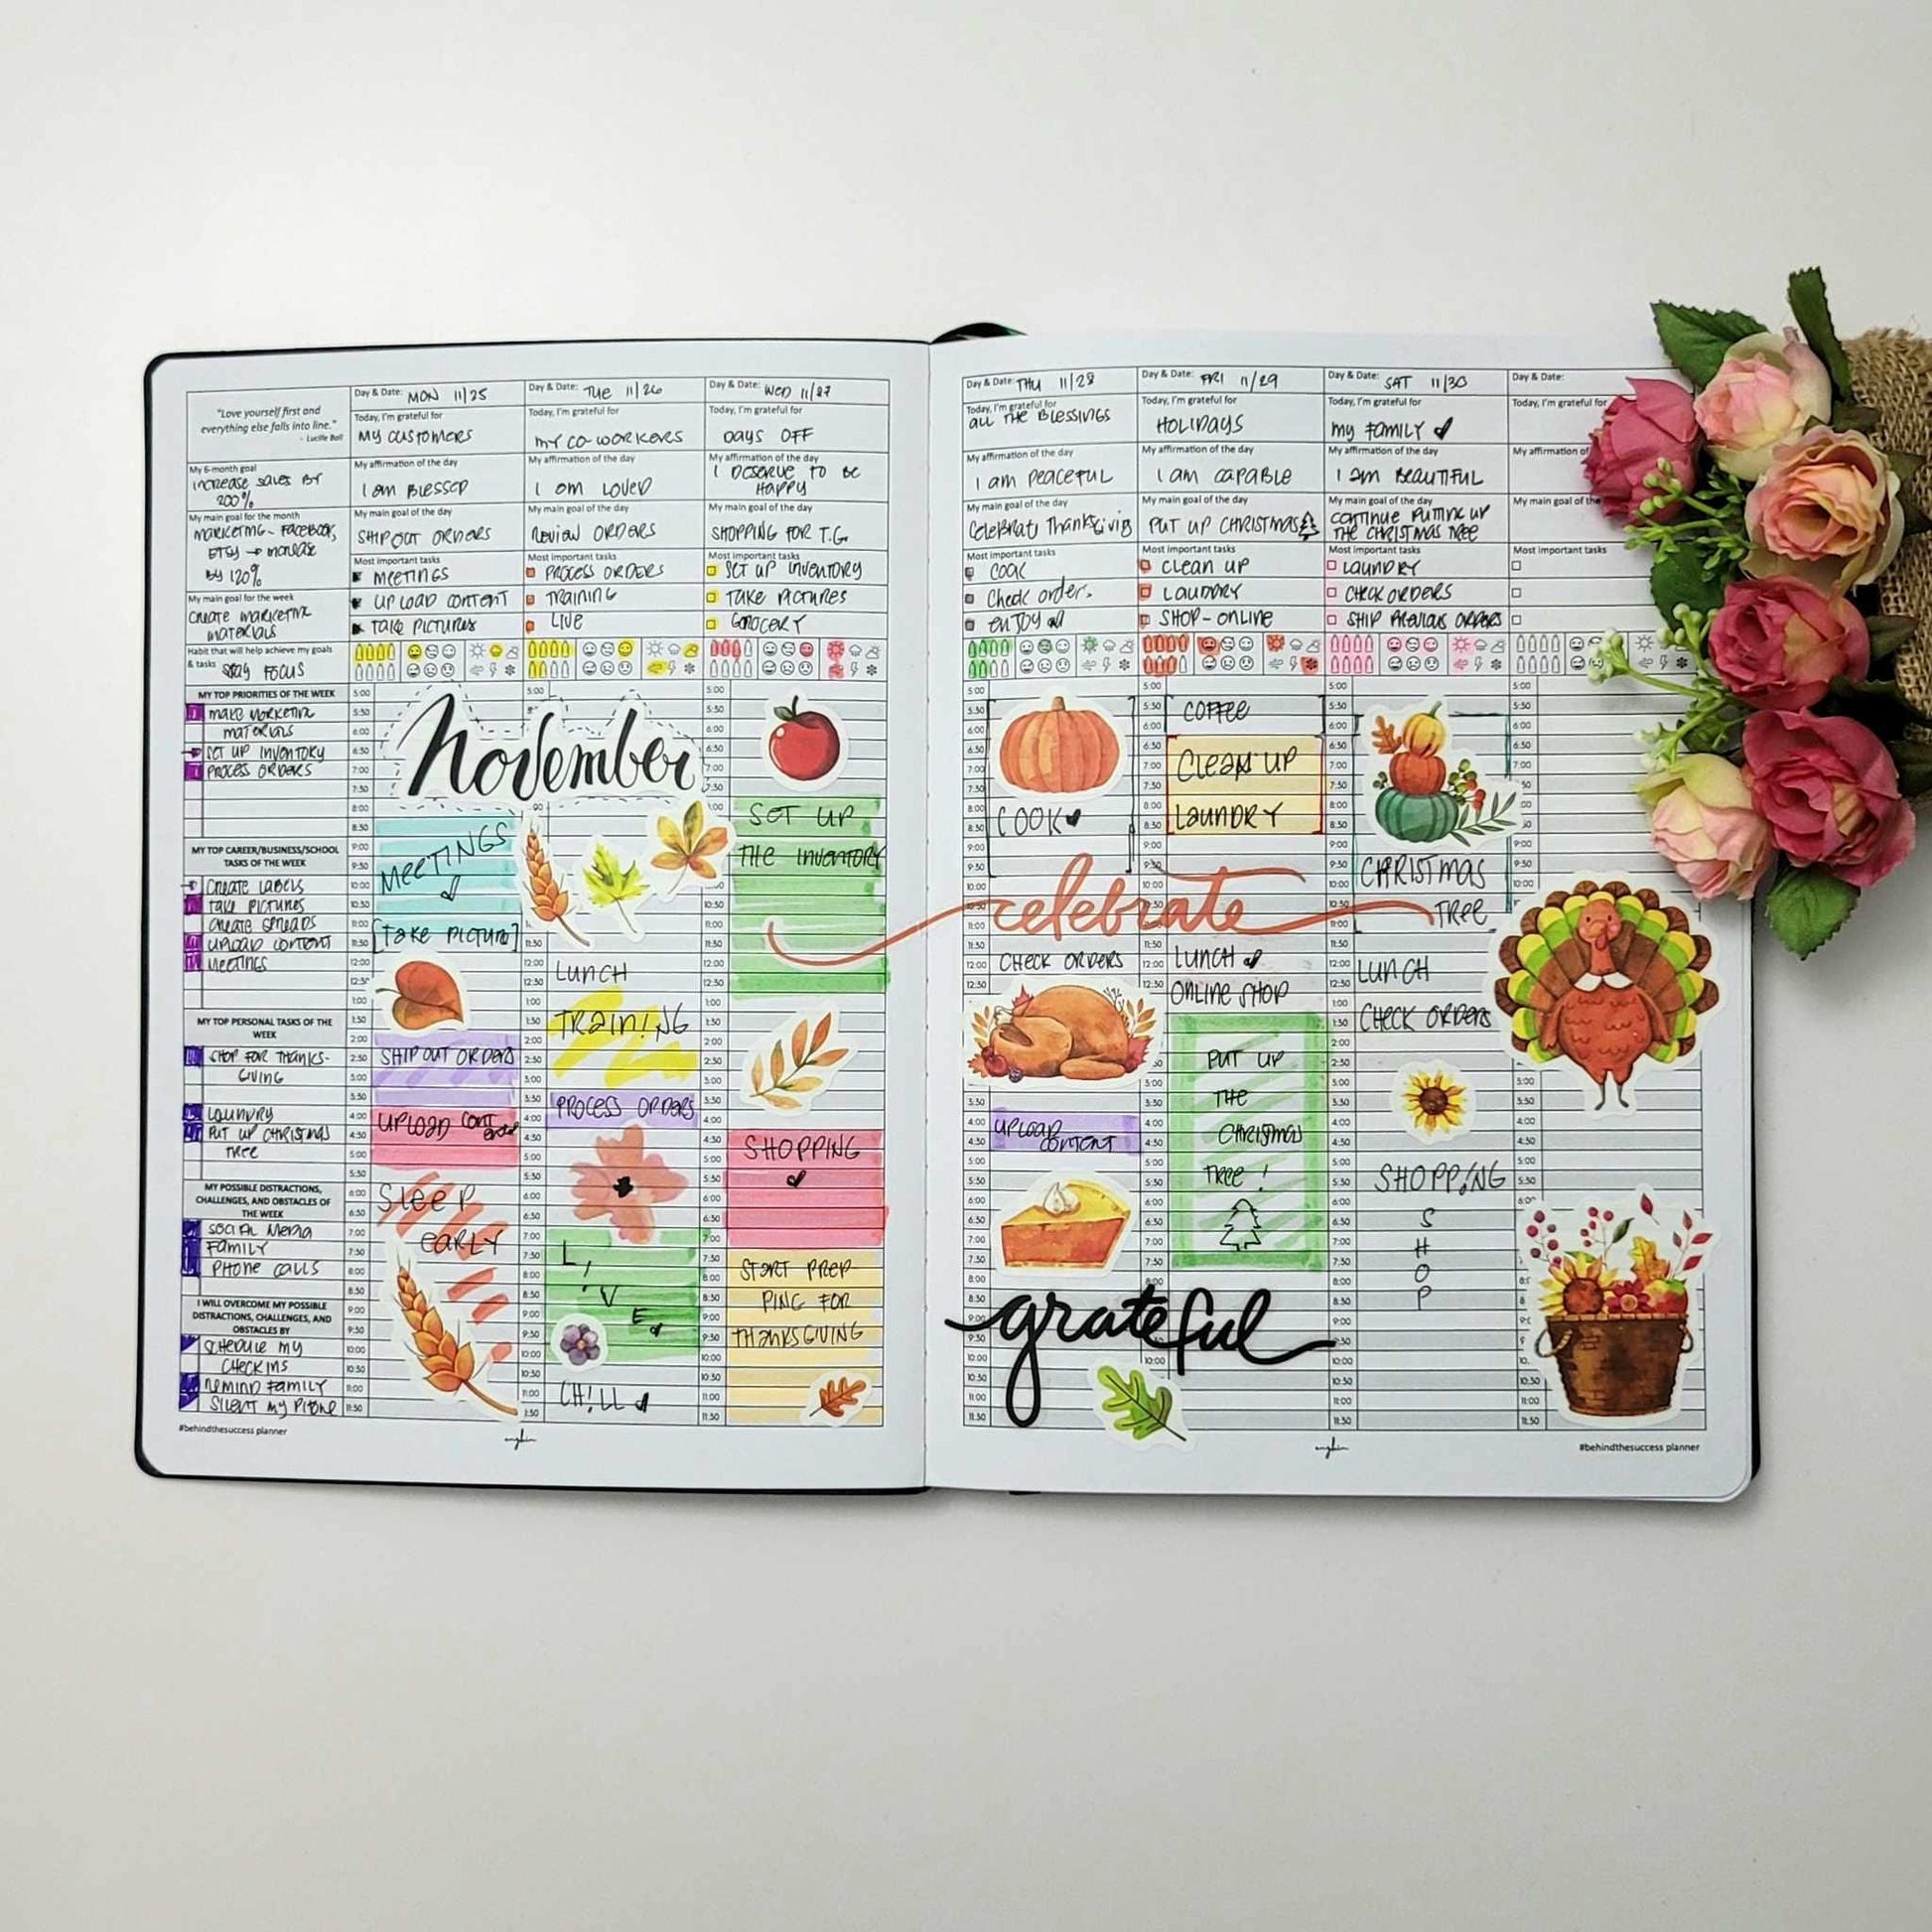 "Love yourself first and
everything else falls into line."
- Lucille Ball
My 6-month goal
increase sales by
200%
My main goal for the month
marketing - Facebook,
Etsy → increase
by 120%
My main goal for the week
create marketing
materials
Habit that will help achieve my goals
& tasks stay focus
MY TOP PRIORITIES OF THE WEEK
make marketing
materials
set up inventory
process orders
MY TOP CAREER/BUSINESS/SCHOOL
TASKS OF THE WEEK
create labels
take pictures
create spreads
upload content
meetings
MY TOP PERSONAL TASKS OF THE
WEEK
shop for thanks-
giving
laundry
put up christmas
tree
MY POSSIBLE DISTRACTIONS,
CHALLENGES, AND OBSTACLES OF
THE WEEK
social media
family
phone calls
I WILL OVERCOME MY POSSIBLE
DISTRACTIONS, CHALLENGES, AND
OBSTACLES BY
schedule my
check ins
remind family
silent my phone
#behindthesuccess planner
Day & Date: MON 11/25
Today, I'm grateful for
my customers
My affirmation of the day
I am blessed
My main goal of the day
ship out orders
Most important tasks
meetings
upload content
take pictures
November
MEETINGS
[take picture]
SHIP OUT ORDERS
UPLOAD
SLEEP
EARLY
Day & Date: TUE 11/26
Today, I'm grateful for
my co-workers
My affirmation of the day
I am loved
My main goal of the day
review orders
Most important tasks
process orders
training
live
LUNCH
TRAINING
PROCESS ORDERS
L
I
V
E
CHILL
Day & Date: WED 11/27
Today, I'm grateful for
days off
My affirmation of the day
I deserve to be
happy
My main goal of the day
shopping for T.G.
Most important tasks
set up inventory
take pictures
grocery
SET UP
THE INVENTORY
SHOPPING
START PREP-
PING FOR
THANKSGIVING
Day & Date: THU 11/28
Today, I'm grateful for
all the blessings
My affirmation of the day
I am peaceful
My main goal of the day
celebrat thanksgiving
Most important tasks
check order.
enjoy
COOK
celebrate
CHECK ORDERS
UPLOAD
CONTENT
grateful
Day & Date: FRI 11/29
Today, I'm grateful for
holidays
My affirmation of the day
I am capable
My main goal of the day
put up christmas
Most important tasks
clean up
laundry
shop-online
COFFEE
CLEAN UP
LAUNDRY
LUNCH
ONLINE SHOP
PUT UP
THE
CHRISTMAS
TREE!
Day & Date: SAT 11/30
Today, I'm grateful for
my family
My affirmation of the day
I am beautiful
My main goal of the day
continue putting up
the christmas tree
Most important tasks
laundry
check orders
ship previous orders
CHRISTMAS
TREE
LUNCH
CHECK ORDERS
SHOPPING
S
H
O
P
Day & Date:
Today, I'm grateful for
My affirmation of
My main goal of the
Most important tasks
#behindthesuccess planner